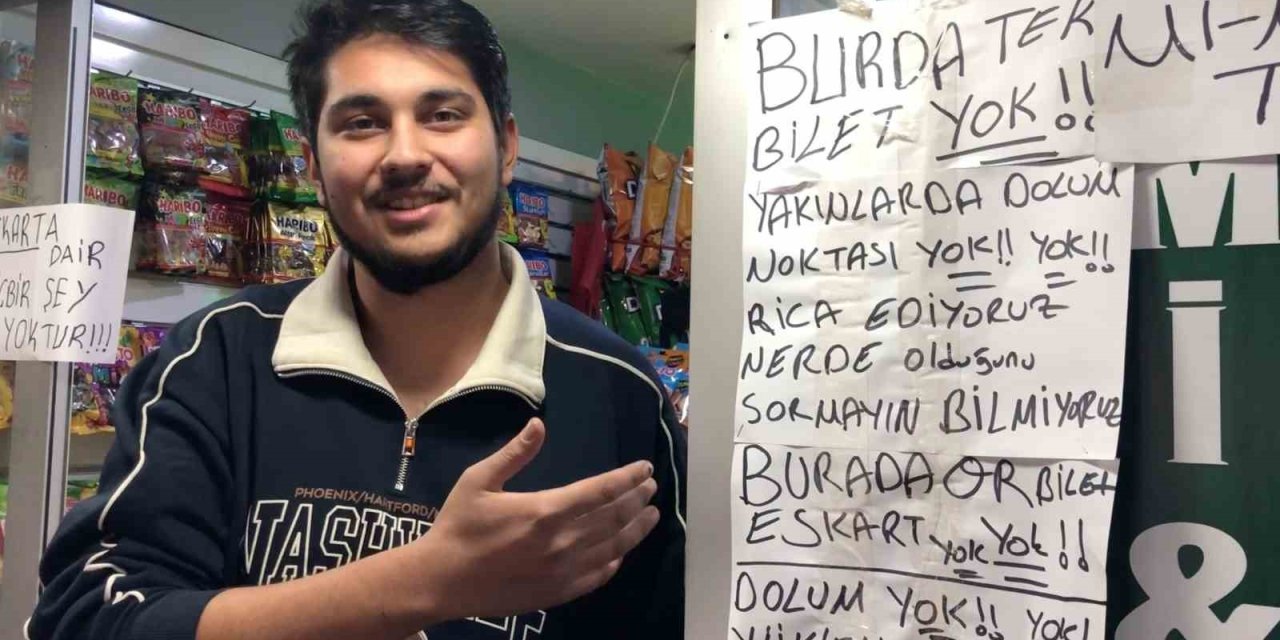 BURDA TEK
BİLET YOK!!
YAKINLARDA DOLUM
NOKTASI YOK!! YOK!!
RİCA EDİYORUZ
NERDE olduğunu
SORMAYIN BİLMİYORUZ
BURADA QR BİLET
ESKART YOK YOK!!
DOLUM YOK!! YOK!
KARTA
DAİR
ÇBİR ŞEY
YOKTUR!!!
HARIBO
HARIBO
HARIBO
HARIBO
HARIBO
PHOENIX/HARTFORD/
NASHV
Mİ
&